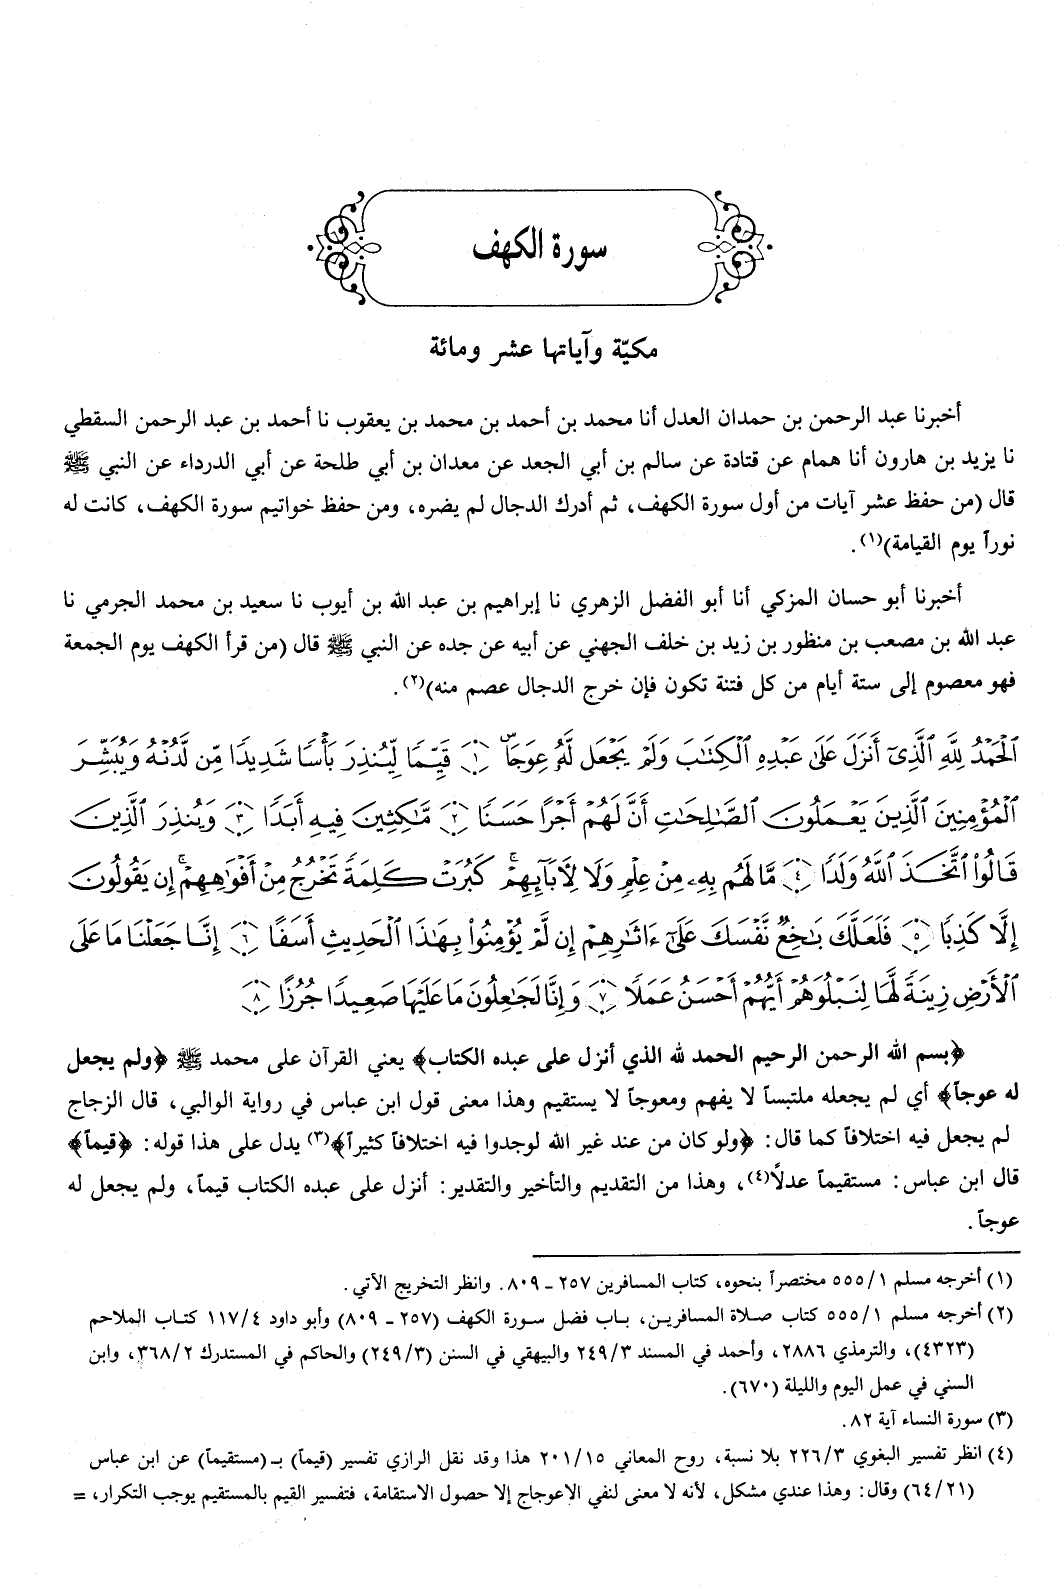 سورة الكهف
مكيّة وآياتها عشر ومائة
أخبرنا عبد الرحمن بن حمدان العدل أنا محمد بن أحمد بن محمد بن يعقوب نا أحمد بن عبد الرحمن السقطي
نا يزيد بن هارون أنا همام عن قتادة عن سالم بن أبي الجعد عن معدان بن أبي طلحة عن أبي الدرداء عن النبي ﷺ
قال (من حفظ عشر آيات من أول سورة الكهف، ثم أدرك الدجال لم يضره، ومن حفظ خواتيم سورة الكهف، كانت له
نوراً يوم القيامة)(١).
أخبرنا أبو حسان المزكي أنا أبو الفضل الزهري نا إبراهيم بن عبد الله بن أيوب نا سعيد بن محمد الجرمي نا
عبد الله بن مصعب بن منظور بن زيد بن خلف الجهني عن أبيه عن جده عن النبي ﷺ قال (من قرأ الكهف يوم الجمعة
فهو معصوم إلى ستة أيام من كل فتنة تكون فإن خرج الدجال عصم منه)(٢).
ٱلْحَمْدُ لِلَّهِ ٱلَّذِىٓ أَنزَلَ عَلَىٰ عَبْدِهِ ٱلْكِتَٰبَ وَلَمْ يَجْعَل لَّهُۥ عِوَجَاۜ ١ قَيِّمًا لِّيُنذِرَ بَأْسًا شَدِيدًا مِّن لَّدُنْهُ وَيُبَشِّرَ
ٱلْمُؤْمِنِينَ ٱلَّذِينَ يَعْمَلُونَ ٱلصَّٰلِحَٰتِ أَنَّ لَهُمْ أَجْرًا حَسَنًا ٢ مَّٰكِثِينَ فِيهِ أَبَدًا ٣ وَيُنذِرَ ٱلَّذِينَ
قَالُوا۟ ٱتَّخَذَ ٱللَّهُ وَلَدًا ٤ مَّا لَهُم بِهِۦ مِنْ عِلْمٍ وَلَا لِءَابَآئِهِمْ ۚ كَبُرَتْ كَلِمَةً تَخْرُجُ مِنْ أَفْوَٰهِهِمْ ۚ إِن يَقُولُونَ
إِلَّا كَذِبًا ٥ فَلَعَلَّكَ بَٰخِعٌ نَّفْسَكَ عَلَىٰٓ ءَاثَٰرِهِمْ إِن لَّمْ يُؤْمِنُوا۟ بِهَٰذَا ٱلْحَدِيثِ أَسَفًا ٦ إِنَّا جَعَلْنَا مَا عَلَى
ٱلْأَرْضِ زِينَةً لَّهَا لِنَبْلُوَهُمْ أَيُّهُمْ أَحْسَنُ عَمَلًا ٧ وَإِنَّا لَجَٰعِلُونَ مَا عَلَيْهَا صَعِيدًا جُرُزًا ٨
﴿بسم الله الرحمن الرحيم الحمد لله الذي أنزل على عبده الكتاب﴾ يعني القرآن على محمد ﷺ ﴿ولم يجعل
له عوجاً﴾ أي لم يجعله ملتبساً لا يفهم ومعوجاً لا يستقيم وهذا معنى قول ابن عباس في رواية الوالبي، قال الزجاج
لم يجعل فيه اختلافاً كما قال: ﴿ولو كان من عند غير الله لوجدوا فيه اختلافاً كثيراً﴾(٣) يدل على هذا قوله: ﴿قيماً﴾
قال ابن عباس: مستقيماً عدلًا(٤)، وهذا من التقديم والتأخير والتقدير: أنزل على عبده الكتاب قيماً، ولم يجعل له
عوجاً.
(١) أخرجه مسلم ٥٥٥/١ مختصراً بنحوه، كتاب المسافرين ٢٥٧ ـ ٨٠٩. وانظر التخريج الآتي.
(٢) أخرجه مسلم ٥٥٥/١ كتاب صلاة المسافرين، باب فضل سورة الكهف (٢٥٧ ـ ٨٠٩) وأبو داود ١١٧/٤ كتاب الملاحم
(٤٣٢٣)، والترمذي ٢٨٨٦، وأحمد في المسند ٢٤٩/٣ والبيهقي في السنن (٢٤٩/٣) والحاكم في المستدرك ٣٦٨/٢، وابن
السني في عمل اليوم والليلة (٦٧٠).
(٣) سورة النساء آية ٨٢.
(٤) انظر تفسير البغوي ٢٢٦/٣ بلا نسبة، روح المعاني ٢٠١/١٥ هذا وقد نقل الرازي تفسير (قيماً) بـ (مستقيماً) عن ابن عباس
(٦٤/٢١) وقال: وهذا عندي مشكل، لأنه لا معنى لنفي الاعوجاج إلا حصول الاستقامة، فتفسير القيم بالمستقيم يوجب التكرار، =